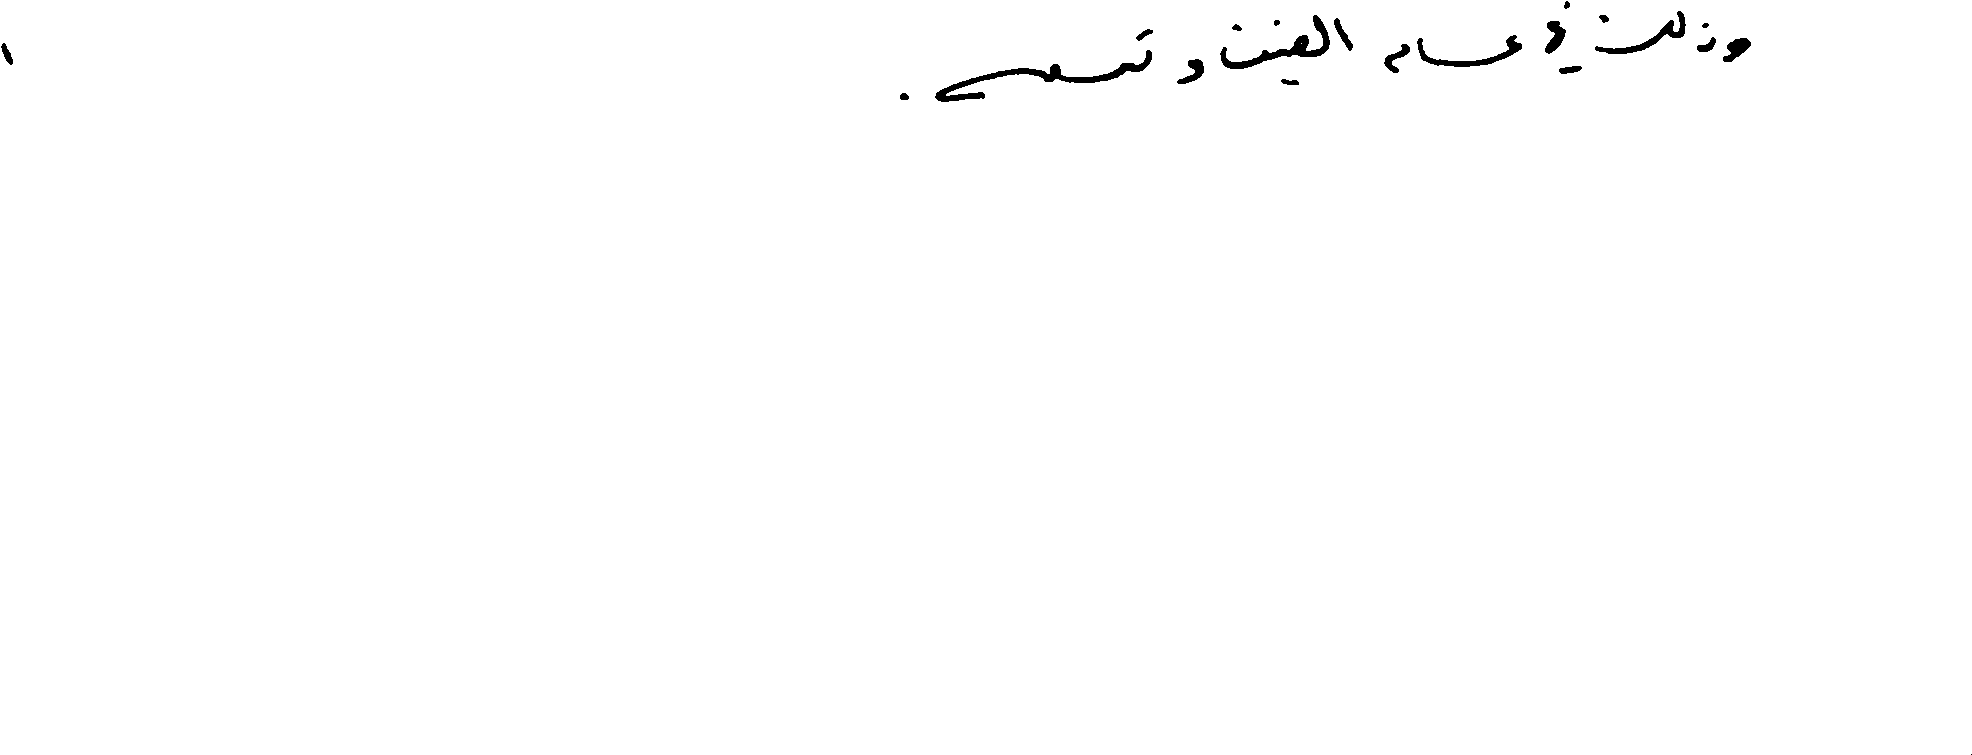 وذلك في عام الفين وتسعه .